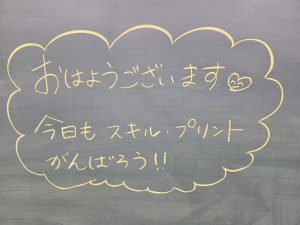 おはようございます
今日も スキル・プリント
がんばろう!!